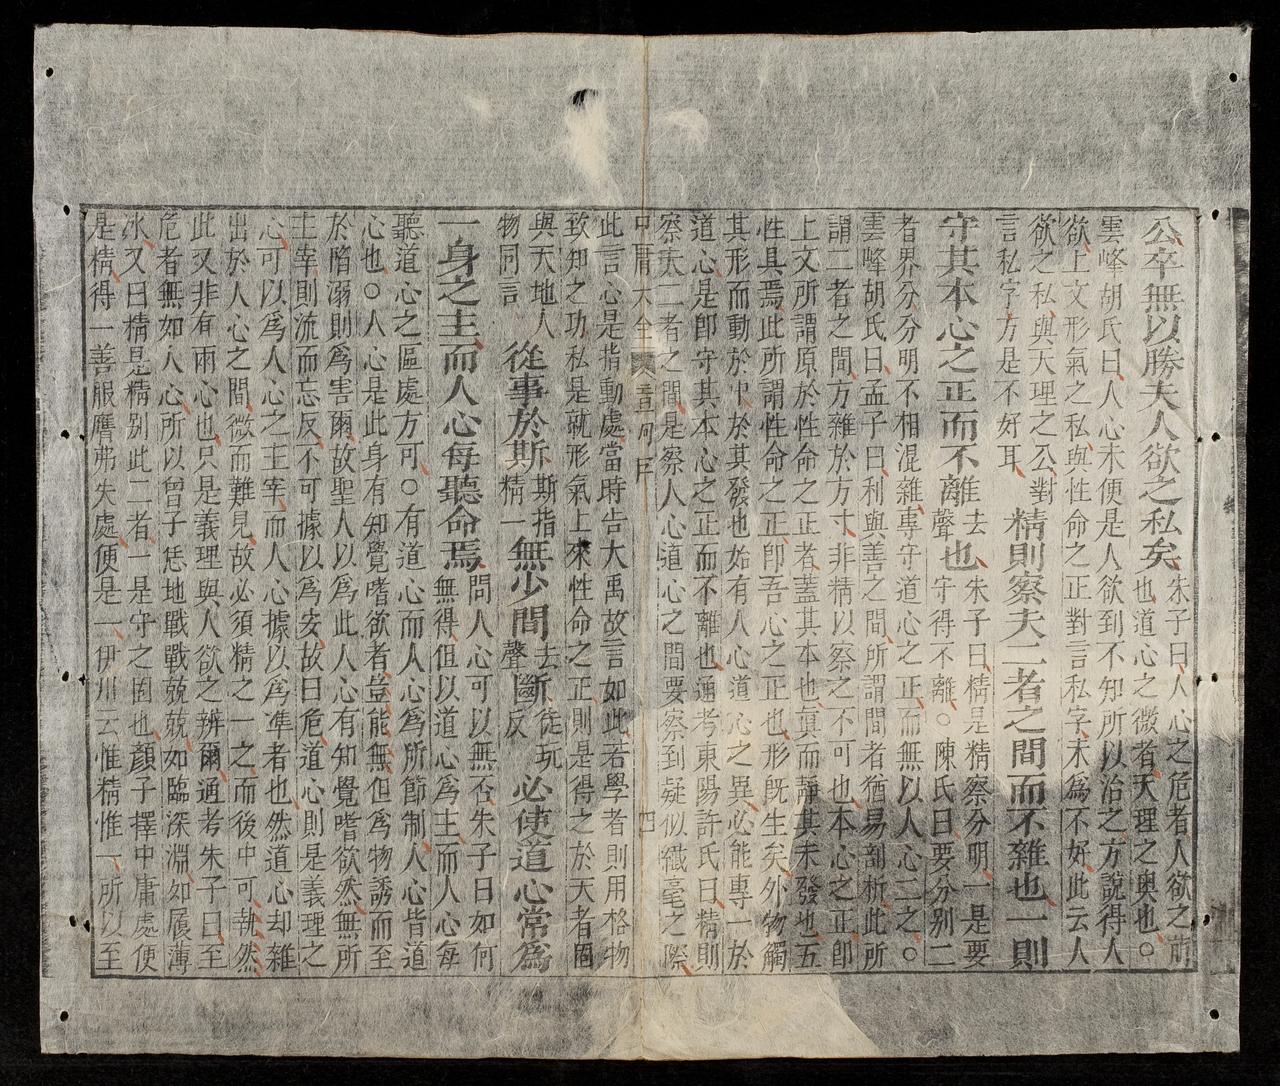 公卒無以勝夫人欲之私矣
朱子曰人心之危者人欲之萌
也道心之微者天理之奧也○
雲峰胡氏曰人心未便是人欲到不知所以治之方說得人
欲上文形氣之私與性命之正對言私字未爲不好此云人
欲之私與天理之公對
言私字方是不好耳
精則察夫二者之間而不雜也一則
守其本心之正而不離
去
聲
也
朱子曰精是精察分明一是要
守得不離○陳氏曰要分别二
者界分分明不相混雜專守道心之正而無以人心二之○
雲峰胡氏曰孟子曰利與善之間所謂間者猶易剖析此所
謂二者之間方雜於方寸非精以察之不可也本心之正卽
上文所謂原於性命之正者蓋其本也眞而靜其未發也五
性具焉此所謂性命之正卽吾心之正也形旣生矣外物觸
其形而動於中於其發也始有人心道心之異必能專一於
道心是卽守其本心之正而不離也通考東陽許氏曰精則
察夫二者之間是察人心道心之間要察到疑似纖毫之際
中庸大全 章句序 四
此言心是指動處當時告大禹故言如此若學者則用格物
致知之功私是就形氣上來性命之正則是得之於天者固
與天地人
物同言
從事於斯
斯指
精一
無少間
去
聲
斷
徒玩
反
必使道心常爲
一身之主而人心每聽命焉
問人心可以無否朱子曰如何
無得伹以道心爲主而人心每
聽道心之區處方可○有道心而人心爲所節制人心皆道
心也○人心是此身有知覺嗜欲者豈能無但爲物誘而至
於陷溺則爲害爾故聖人以爲此人心有知覺嗜欲然無所
主宰則流而忘反不可據以爲安故曰危道心則是義理之
心可以爲人心之主宰而人心據以爲準者也然道心却雜
出於人心之間微而難見故必須精之一之而後中可執然
此又非有兩心也只是義理與人欲之辨爾通考朱子曰至
危者無如人心所以曾子恁地戰戰兢兢如臨深淵如履薄
冰又曰精是精别此二者一是守之固也顏子擇中庸處便
是精得一善服膺弗失處便是一伊川云惟精惟一所以至